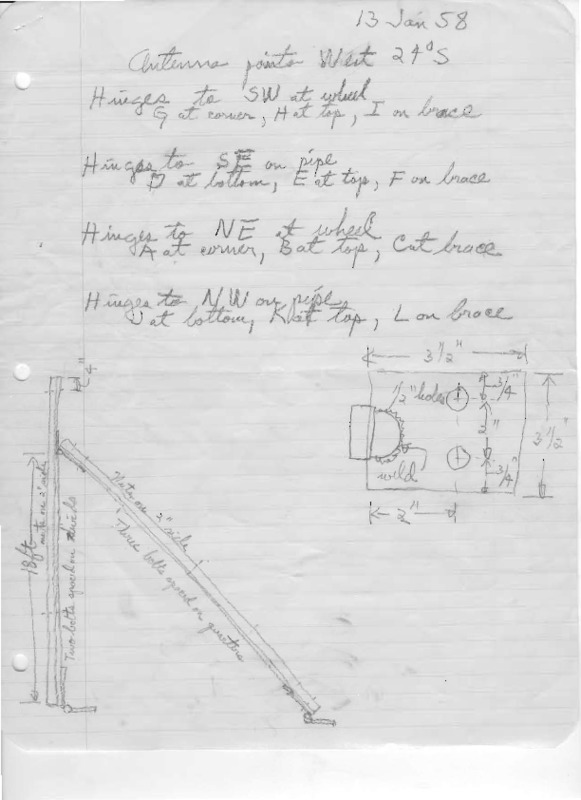 13 Jan 58
Antenna points West 24°S
Hinges to SW at wheel
G at corner, H at top, I on brace
Hinges to SE on pipe
D at bottom, E at top, F on brace
Hinges to NE at wheel
A at corner, B at top, C at brace
Hinges to NW on pipe
J at bottom, K at top, L on brace
3 1/2"
1/2" holes
3/4"
2"
3 1/2"
weld
3/4"
2"
4"
18 ft
nuts on 2" side
Two bolts spaced on thirds
Nuts on 2" side
Three bolts spaced on quarters